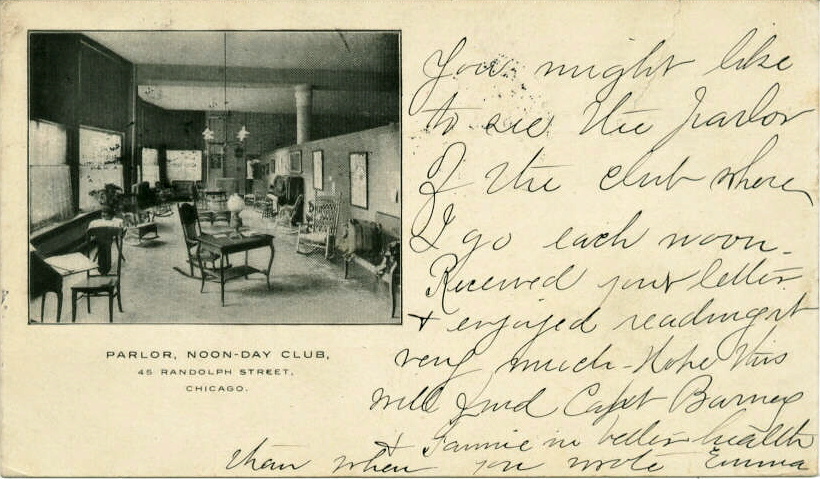 You might like
to see the parlor
of the club where
I go each noon.
Received your letter
& enjoyed reading it
very much - Hope this
will find Capt Barnes
& Fannie in better health
than when you wrote Emma
PARLOR, NOON-DAY CLUB,
45 RANDOLPH STREET,
CHICAGO.